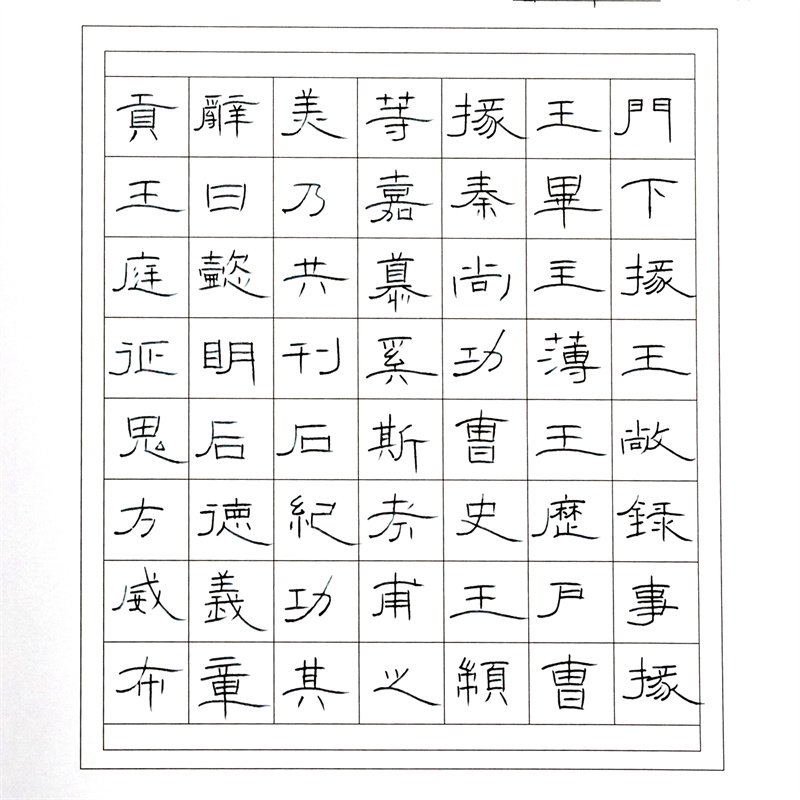 門下掾王敞錄事掾
王畢主薄王歷戶曹
掾秦尚功曹史王顓
等嘉慕奚斯考甫之
美乃共刊石紀功其
辭曰懿明后德義章
貢王庭征鬼方威布